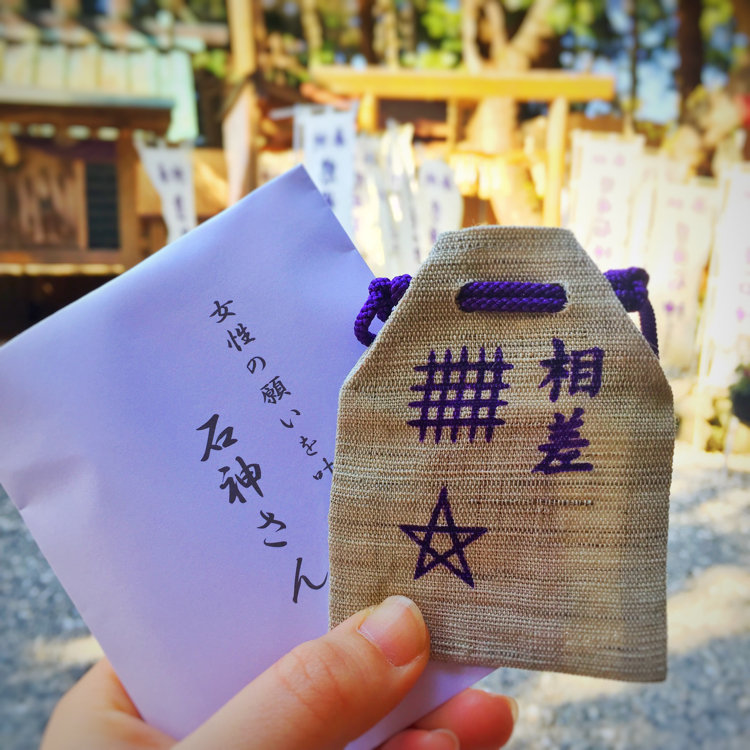 女性の願いを叶
石神さん
相差